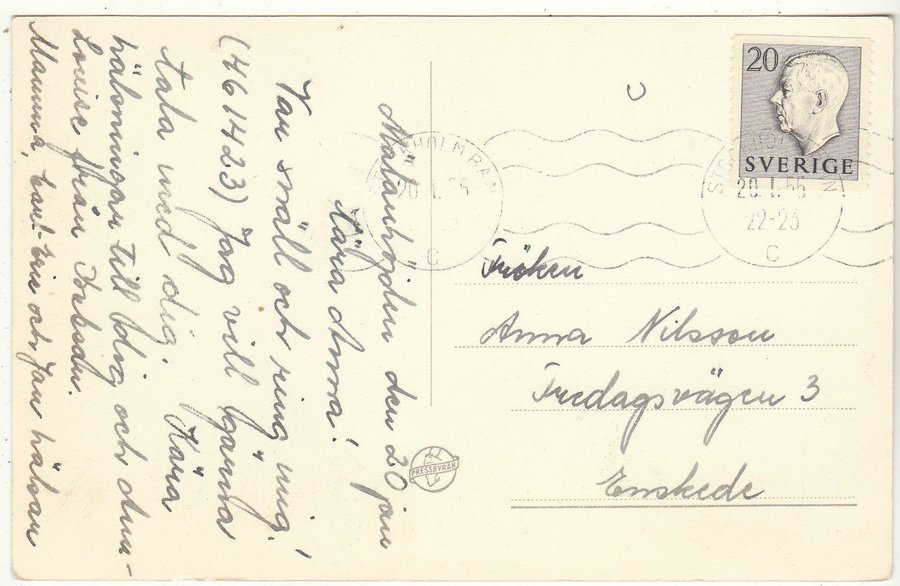 Mälarhöjden den 20 jan
Kära Anna!
Var snäll och ring mig!
(461423) Jag vill gärna
tala med dig. Kära
hälsningar till dig och Ann-
Louise från
Mamma, och Jan hälsar
STOCKHOLM BAN
20.1.55
C
20
SVERIGE
20.1.55
22-25
C
Fröken
Anna Nilsson
Fredagsvägen 3
Enskede
PRESSBYRÅN